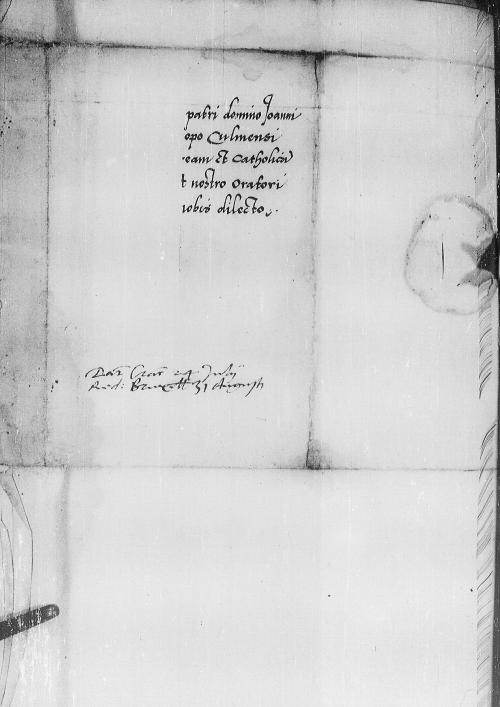 patri domino Joanni
opo Culmensi
eam et Catholicā
t nostro Oratori
nobis dilecto.
Dat Crac 24 Julij
Red: Bruxell 31 Augusti